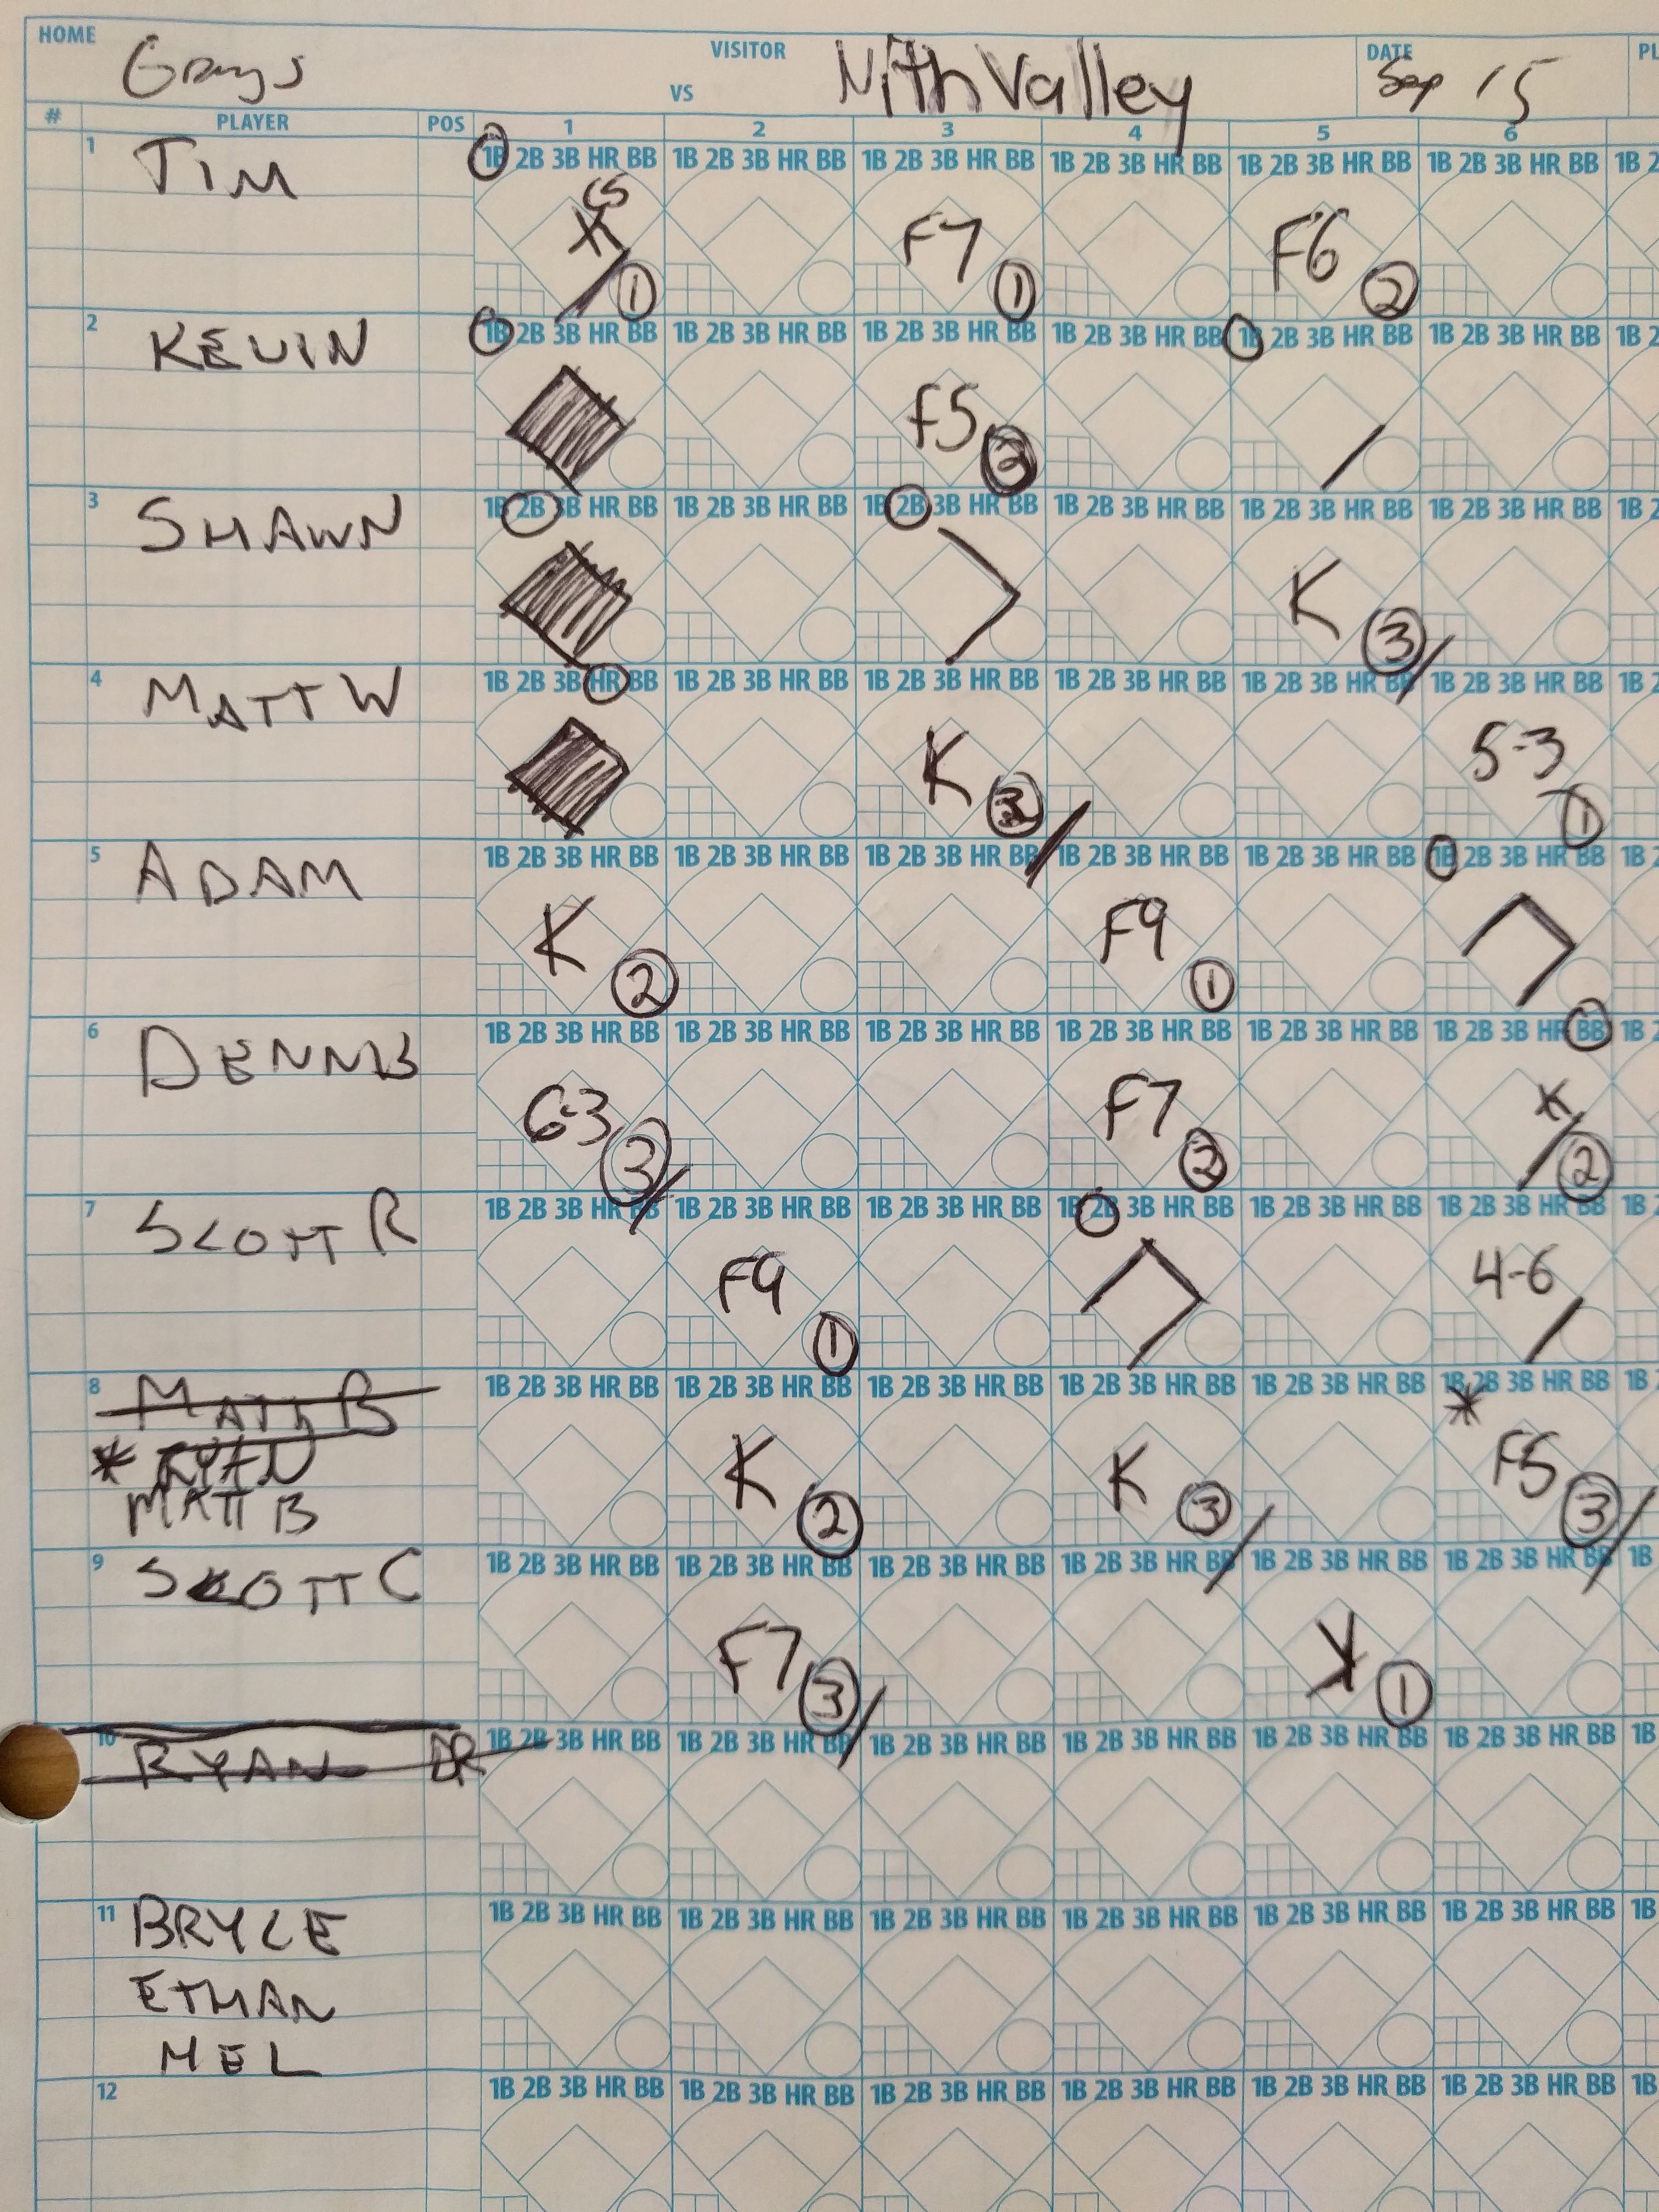 HOME Grays VISITOR VS Nith Valley DATE Sep 15 PL
# PLAYER POS 1 2 3 4 5 6
1 TIM 1B 2B 3B HR BB 1B 2B 3B HR BB 1B 2B 3B HR BB 1B 2B 3B HR BB 1B 2B 3B HR BB 1B 2B 3B HR BB 1B 2
CS
K 1 F7 1 F6 2
2 KEVIN 1B 2B 3B HR BB 1B 2B 3B HR BB 1B 2B 3B HR BB 1B 2B 3B HR BB 1B 2B 3B HR BB 1B 2B 3B HR BB 1B 2
F5 2
3 SHAWN 1B 2B 3B HR BB 1B 2B 3B HR BB 1B 2B 3B HR BB 1B 2B 3B HR BB 1B 2B 3B HR BB 1B 2B 3B HR BB 1B 2
K 3
4 MATT W 1B 2B 3B HR BB 1B 2B 3B HR BB 1B 2B 3B HR BB 1B 2B 3B HR BB 1B 2B 3B HR BB 1B 2B 3B HR BB 1B 2
K 3 5-3 1
5 ADAM 1B 2B 3B HR BB 1B 2B 3B HR BB 1B 2B 3B HR BB 1B 2B 3B HR BB 1B 2B 3B HR BB 1B 2B 3B HR BB 1B 2
K 2 F9 1
6 DENNIS 1B 2B 3B HR BB 1B 2B 3B HR BB 1B 2B 3B HR BB 1B 2B 3B HR BB 1B 2B 3B HR BB 1B 2B 3B HR BB 1B 2
6-3 3 F7 2 K 2
7 SCOTT R 1B 2B 3B HR BB 1B 2B 3B HR BB 1B 2B 3B HR BB 1B 2B 3B HR BB 1B 2B 3B HR BB 1B 2B 3B HR BB 1B 2
F9 1 4-6
8 MATT B 1B 2B 3B HR BB 1B 2B 3B HR BB 1B 2B 3B HR BB 1B 2B 3B HR BB 1B 2B 3B HR BB 1B 2B 3B HR BB 1B
* RYAN K 2 K 3 * F5 3
MATT B
9 SCOTT C 1B 2B 3B HR BB 1B 2B 3B HR BB 1B 2B 3B HR BB 1B 2B 3B HR BB 1B 2B 3B HR BB 1B 2B 3B HR BB 1B
F7 3 K 1
10 RYAN DR 1B 2B 3B HR BB 1B 2B 3B HR BB 1B 2B 3B HR BB 1B 2B 3B HR BB 1B 2B 3B HR BB 1B 2B 3B HR BB 1B
11 BRYCE 1B 2B 3B HR BB 1B 2B 3B HR BB 1B 2B 3B HR BB 1B 2B 3B HR BB 1B 2B 3B HR BB 1B 2B 3B HR BB 1B
ETHAN
MEL
12 1B 2B 3B HR BB 1B 2B 3B HR BB 1B 2B 3B HR BB 1B 2B 3B HR BB 1B 2B 3B HR BB 1B 2B 3B HR BB 1B